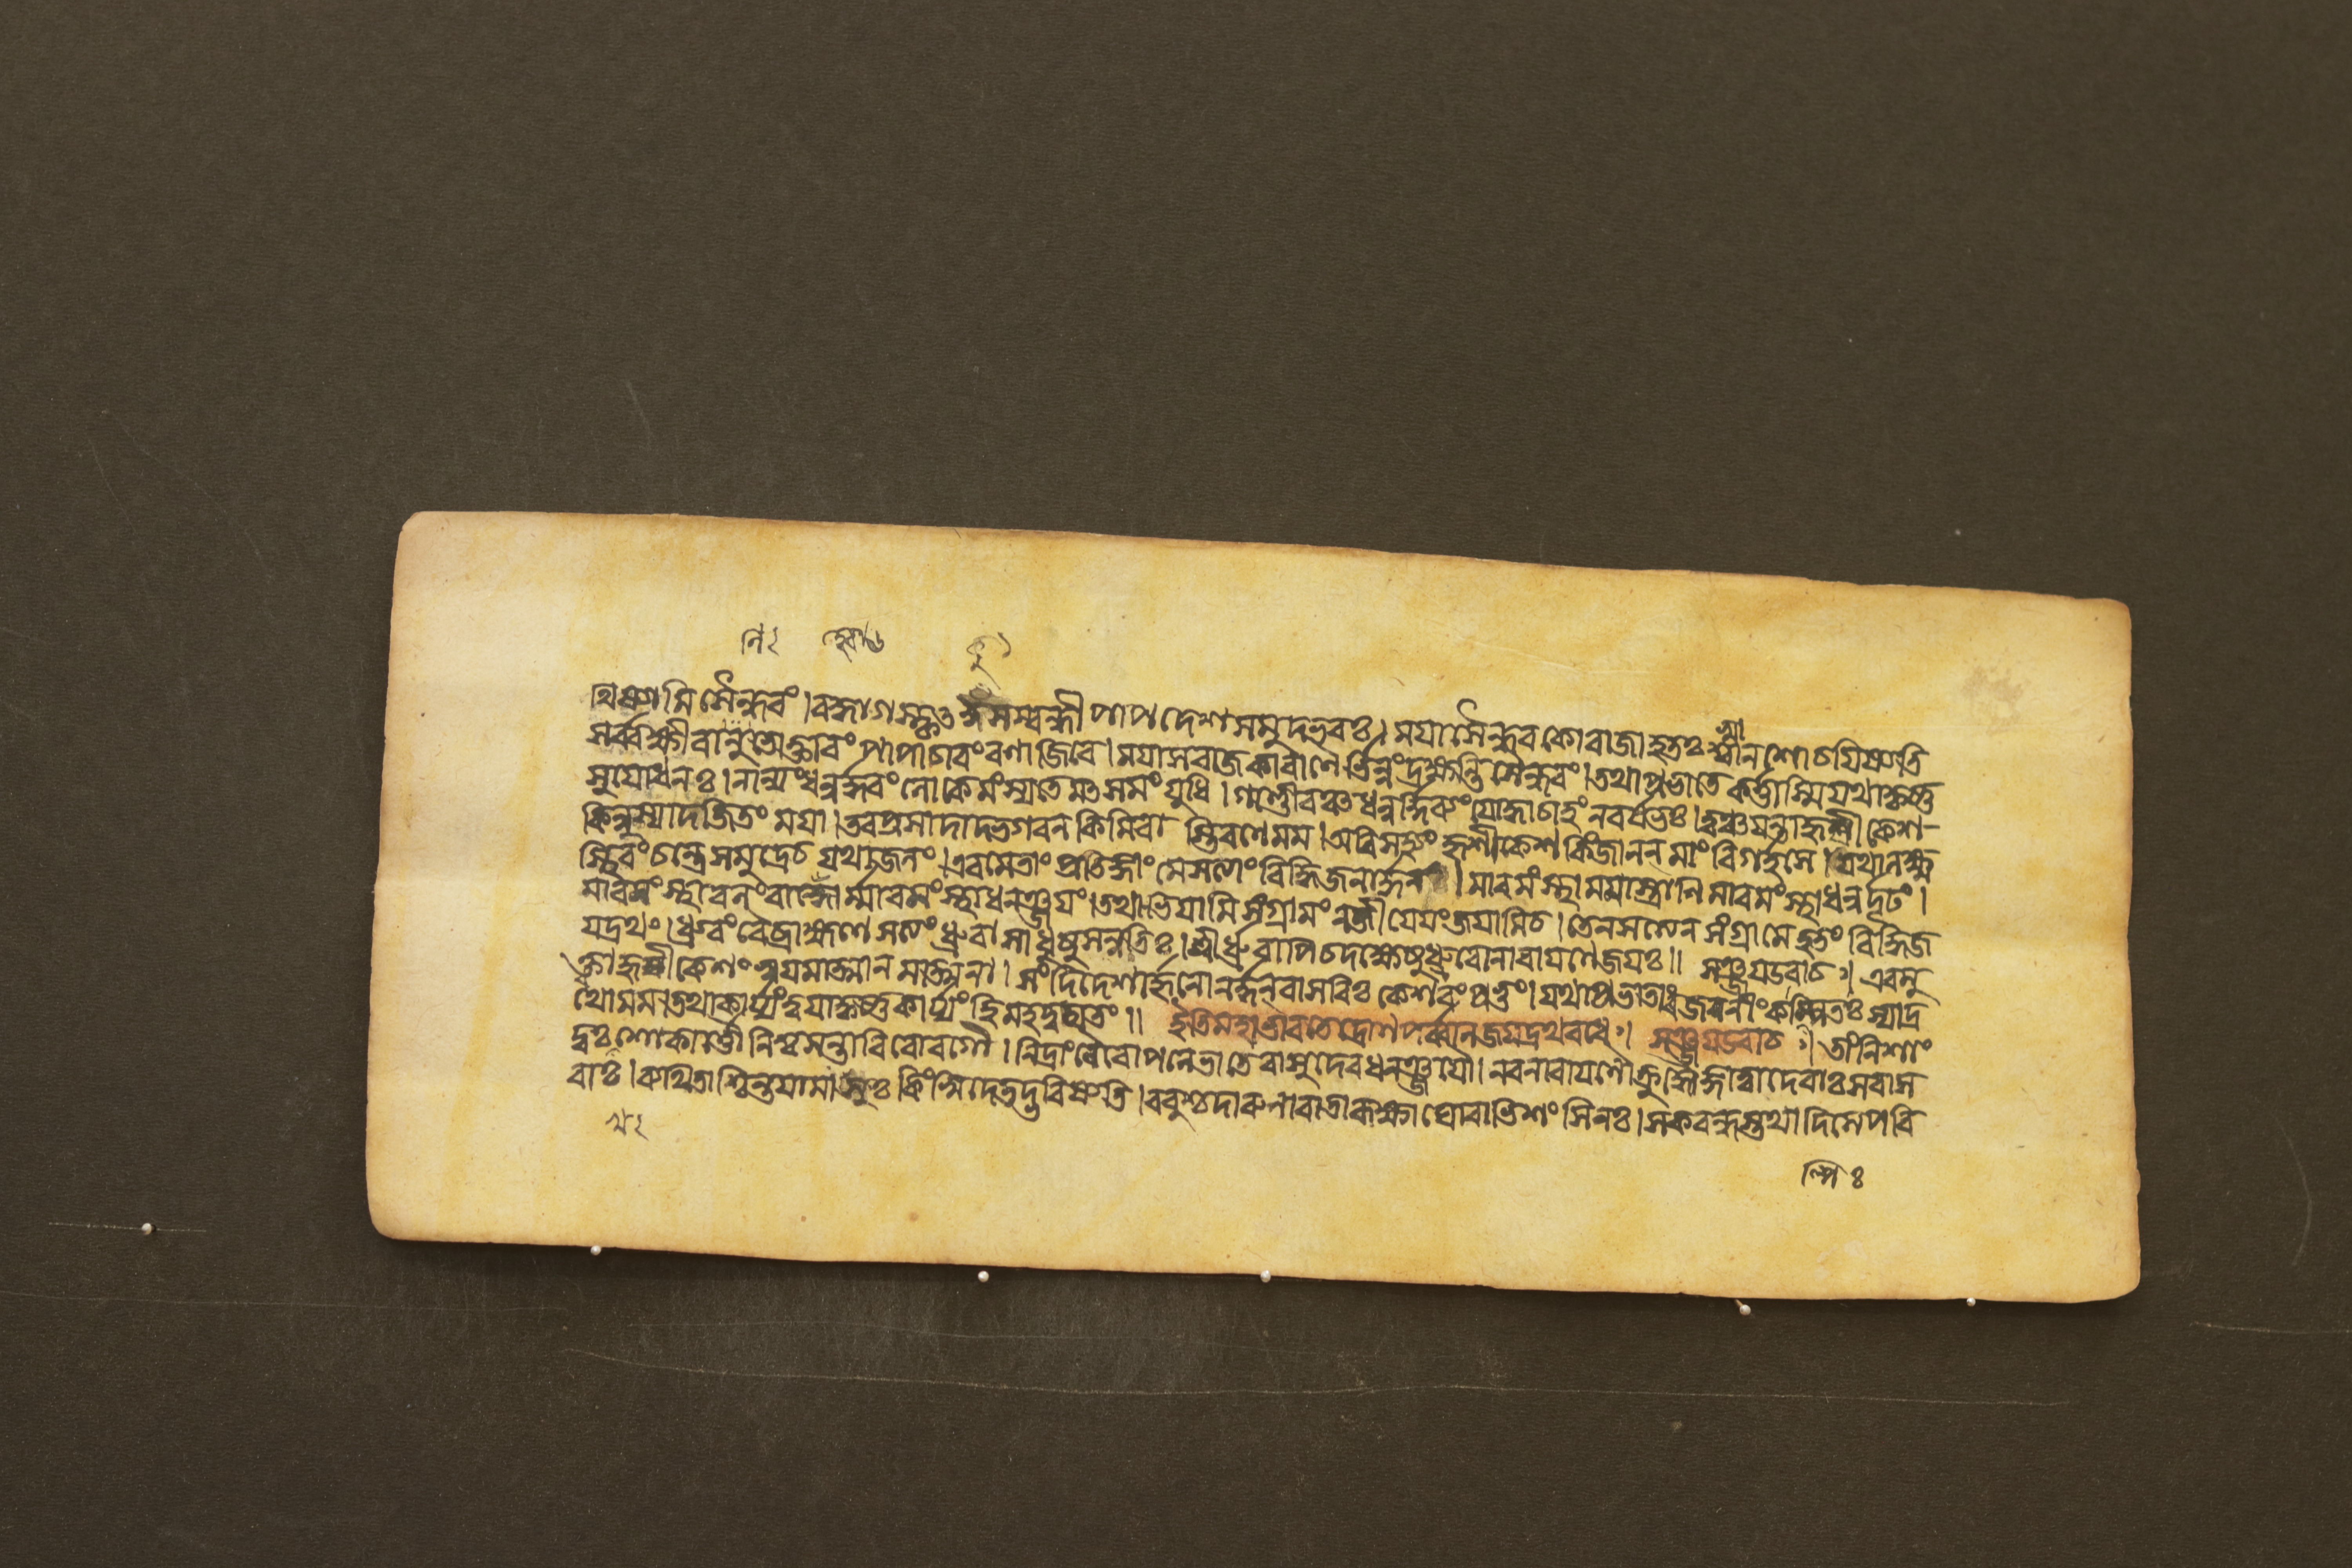 থিষ্যামি সৈন্ধবং। বহ্বাগস্কৃৎ কুসম্বন্ধী পাপদেশসমুদ্ভবঃ। ময়া সৈন্ধবকো রাজা হতঃ স্বান শোচয়িষ্যতি
সর্ব্বক্ষীরান্নভোক্তারং পাপাচারং রণাজিরে। ময়া সরাজকা বাণৈর্ভিন্নং দ্রক্ষ্যন্তি সৈন্ধবং। তথা প্রভাতে কর্ত্তাস্মি যথা কৃষ্ণ
সুযোধনঃ। নান্যং ধনুর্দ্ধরং লোকে মংস্যতে মৎসমং যুধি। গাণ্ডীবঞ্চ ধনুর্দ্দিব্যং যোদ্ধা চাহং নরর্ষভঃ। ত্বঞ্চ যন্তা হৃষীকেশ
কিন্নু স্যাদজিতং ময়া। তব প্রসাদাদ্ভগবন কিমিবাস্তি রণে মম। অবিসহ্যং হৃষীকেশ কিং জানন মাং বিগর্হসে। যথা লক্ষ্ম
স্থিরং চন্দ্রে সমুদ্রে চ যথা জলং। এবমেতাং প্রতিজ্ঞাং মে সত্যাং বিদ্ধি জনার্দ্দন। মাবমংস্থা মমাস্ত্রাণি মাবমংস্থা ধনুর্দৃঢং।
মাবমংস্থা বলং বাহ্বোর্ম্মাবমংস্থা ধনঞ্জয়ং। তথাভিযামি সংগ্রামং ন জীয়েয়ং জয়ামি চ। তেন সত্যেন সংগ্রামে হতং বিদ্ধি জ
যদ্রথং। ধ্রুবং বৈ ব্রাহ্মণে সত্যং ধ্রুবা সাধুষু সন্নতিঃ। শ্রীর্ধ্রুবাপি চ দক্ষেষু ধ্রুবো নারায়ণে জয়ঃ॥ সঞ্জয় উবাচ॥ এবমু
ক্ত্বা হৃষীকেশং স্বয়মাত্মানমাত্মনা। সংদিদেশার্জুনো নর্দ্দন বাসবিঃ কেশবং প্রভুং। যথা প্রভাতাং রজনীং কল্পিতঃ স্যাদ্র
থো মম। তথা কার্য্যং ত্বয়া কৃষ্ণ কার্য্যং হি মহদুদ্যতং॥ ইতি মহাভারতে দ্রোণপর্ব্বনি জয়দ্রথবধে॥ সঞ্জয় উবাচ॥ তাং নিশাং
দুঃখশোকার্ত্তৌ নিশ্বসন্তাবিবোরগৌ। নিদ্রাং নৈবোপলেভাতে বাসুদেবধনঞ্জয়ৌ। নরনারায়ণৌ ক্রুদ্ধৌ জ্ঞাত্বা দেবাঃ সবাস
বাঃ। ব্যথিতাশ্চিন্তয়ামাসুঃ কিংস্বিদেতদ্ভবিষ্যতি। ববুশ্চ দারুণা বাতা রূক্ষা ঘোরাভিশংসিনঃ। সকবন্ধস্তথাদিত্যে পরি